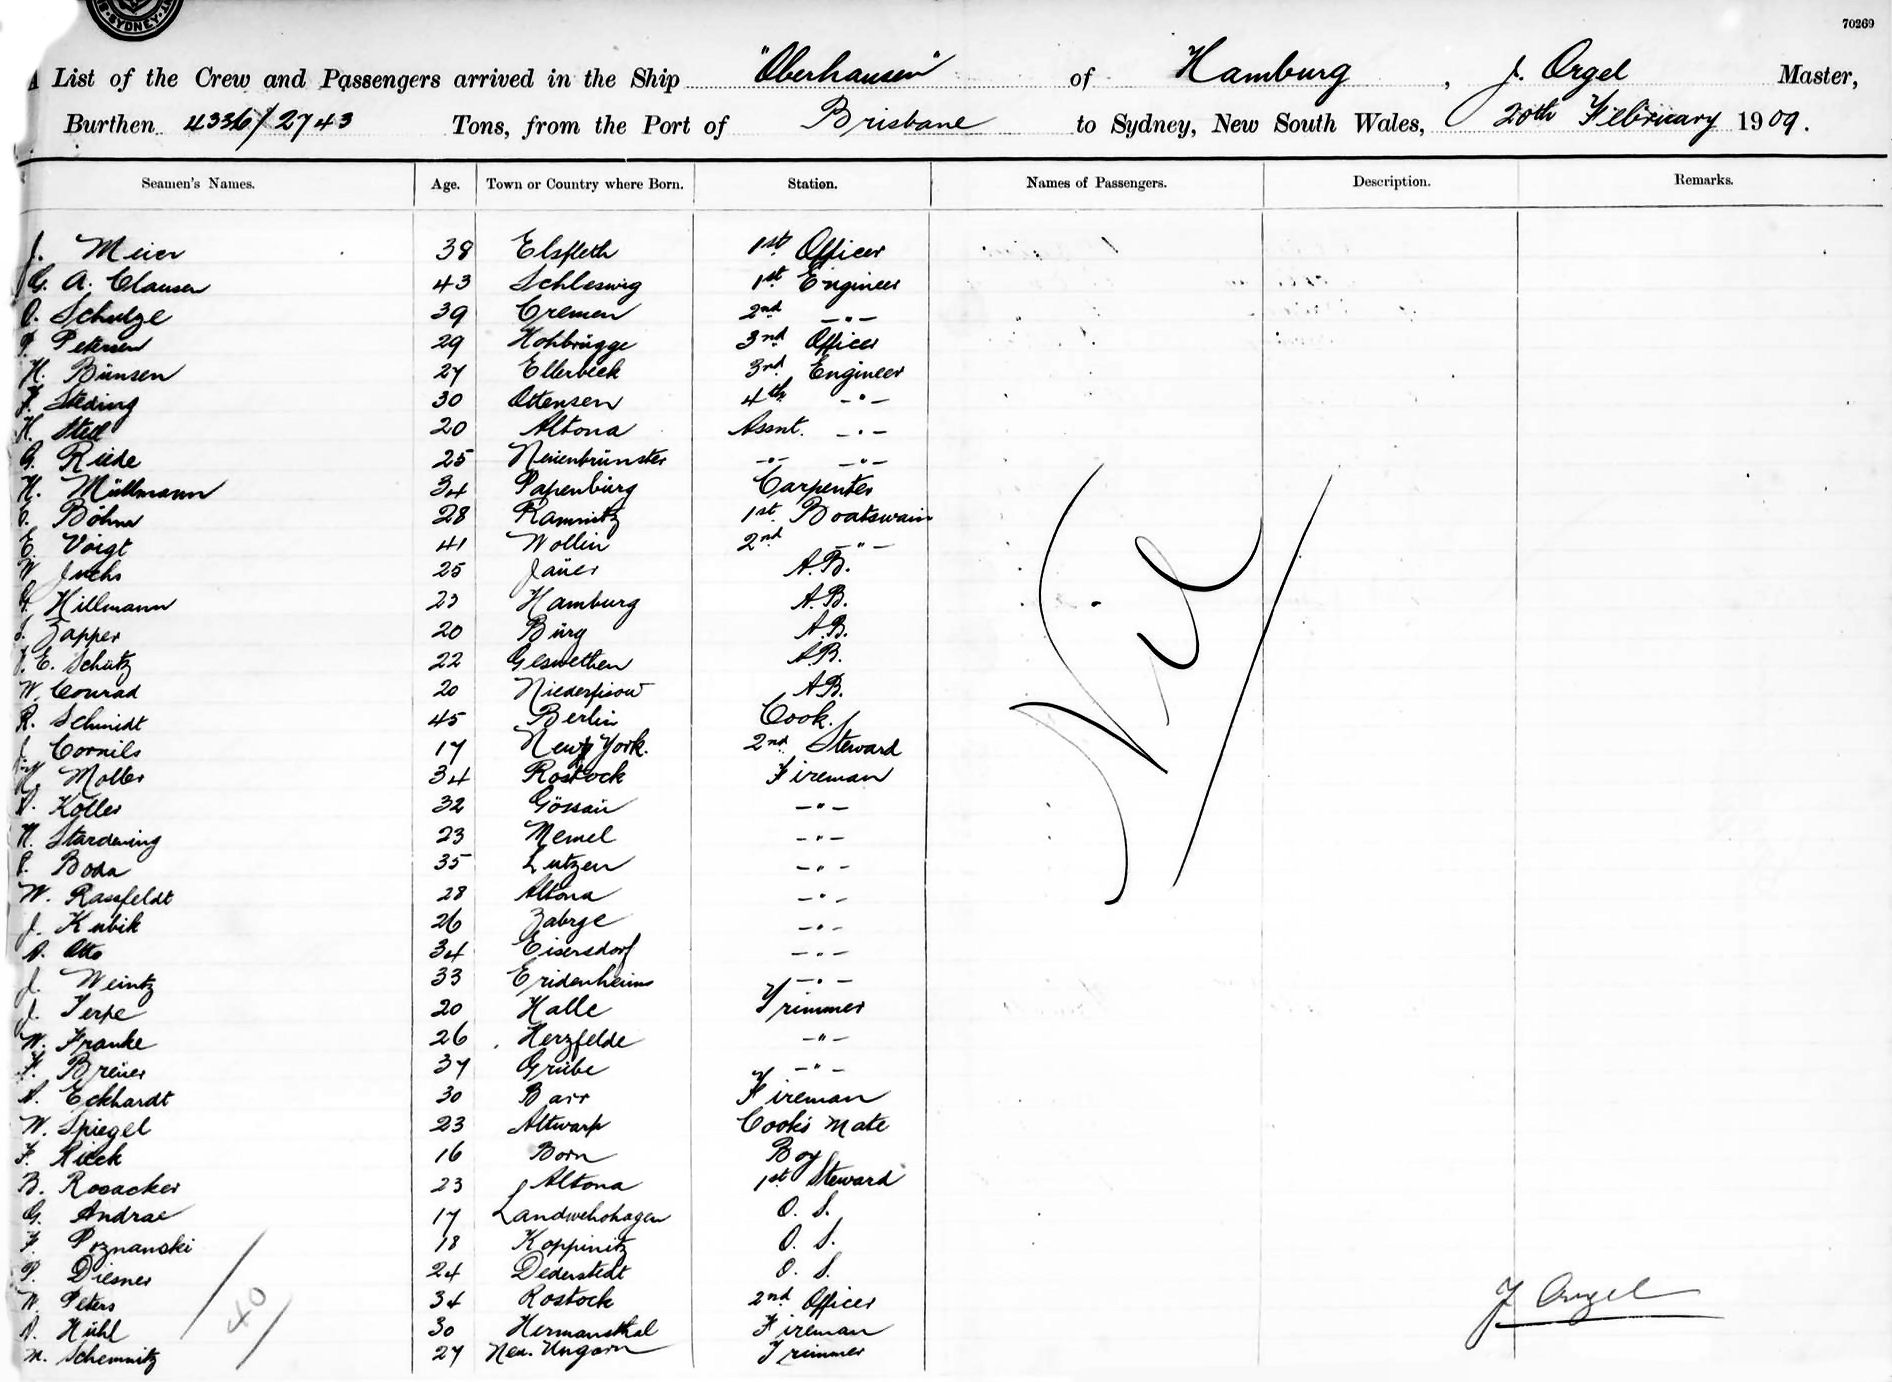 SYDNEY
70269
A List of the Crew and Passengers arrived in the Ship "Oberhausen" of Hamburg, J. Orgel Master,
Burthen 4336/2743 Tons, from the Port of Brisbane to Sydney, New South Wales, 20th February 1909.
Seamen's Names. Age. Town or Country where Born. Station. Names of Passengers. Description. Remarks.
J. Meier 38 Elsfleth 1st Officer
G. A. Clausen 43 Schleswig 1st Engineer
O. Schulze 39 Cremen 2nd -"-
P. Petersen 29 Hohbrügge 3rd Officer
H. Bünsen 27 Ellerbeck 3rd Engineer
F. Steding 30 Ottensen 4th -"-
H. Stell 20 Altona Assnt. -"-
G. Riede 25 Neuenbrünster -"- -"-
H. Müllmann 34 Papenburg Carpenter
O. Böhm 28 Ramnitz 1st Boatswain
E. Voigt 41 Wollin 2nd -"-
W. Fuchs 25 Jauer A.B.
G. Hillmann 23 Hamburg A.B.
Zapper 20 Burg A.B.
E. Schütz 22 Geswethen A.B.
W. Conrad 20 Niederfinow A.B.
R. Schmidt 45 Berlin Cook.
J. Cornils 17 New York. 2nd Steward
H. Moller 34 Rostock Fireman
A. Koller 32 Gössau -"-
N. Stardening 23 Memel -"-
P. Boda 35 Lutzen -"-
W. Rassfeldt 28 Altona -"-
J. Kubik 26 Zabrze -"-
A. Otto 34 Eisersdorf -"-
J. Weintz 33 Eridenheim -"-
J. Terpe 20 Halle Trimmer
W. Franke 26 Herzfelde -"-
F. Breuer 37 Grube -"-
A. Eckhardt 30 Barr Fireman
W. Spiegel 23 Altwarp Cook's Mate
F. Rieck 16 Born Boy
B. Rosacker 23 Altona 1st Steward
G. Andrae 17 Landwehrhagen O. S.
F. Poznanski 18 Koppinitz O. S.
P. Diesner 24 Dederstedt O. S.
W. Peters 34 Rostock 2nd Officer
A. Kühl 30 Hermansthal Fireman
M. Schemnitz 27 Neu. Ungarn Trimmer
Nil
40
J Orgel